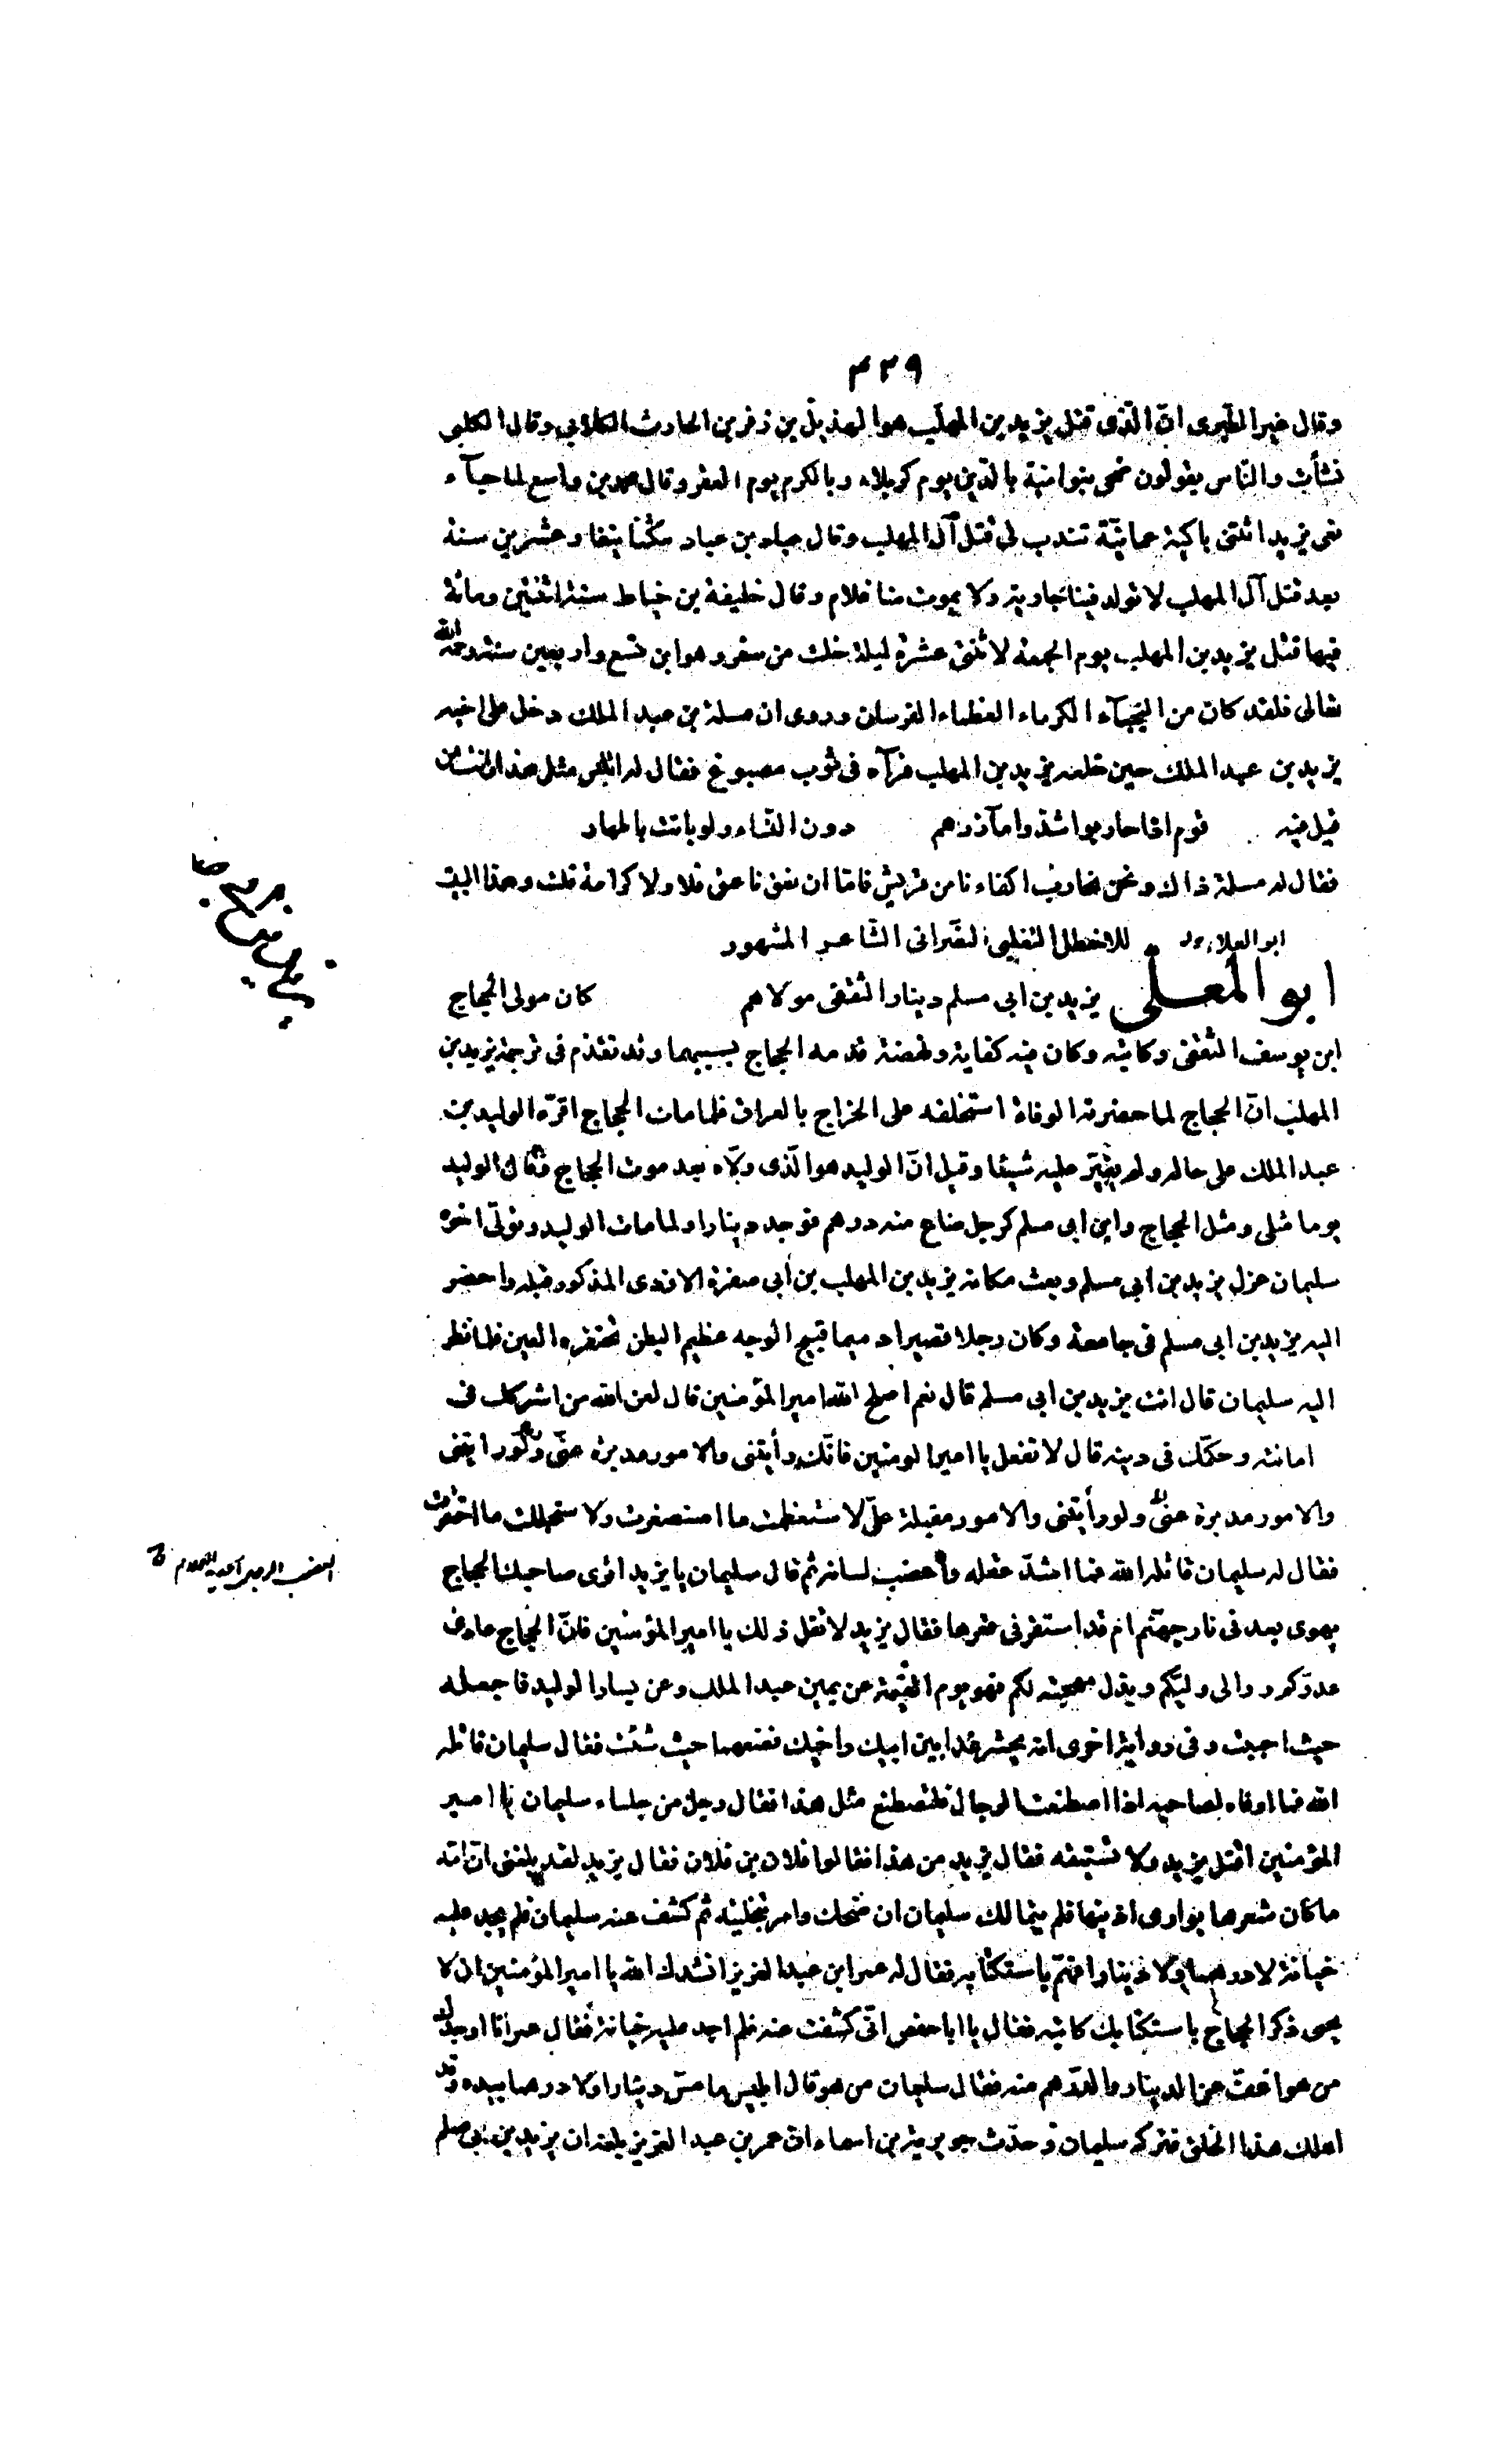 ٣٢٩
وقال غير الطبرى انّ الّذى قتل يزيد بن المهلّب هو الهذيل بن زفر بن الحارث الكلابى وقال الكلبى
نشأت والنّاس يقولون ضحى بنوا ميّة بالدّين يوم كربلاء وبالكرم يوم العقر وقال محمد بن واسع لما جآء
نعى يزيد اتتنى باكية عمانيّة تندب لى قتلى آل المهلب وقال عباد بن عباد مكثنا نيفا وعشرين سنة
بعد قتل آل المهلب لا تولد فينا جارية ولا يموت منا غلام وقال خليفة بن خياط سنة اثنتين ومائة
فيها قتل يزيد بن المهلب يوم الجمعة لاثنتى عشرة ليلة خلت من صفر وهو ابن تسع واربعين سنة رحمه الله
تعالى فلقد كان من النجبآء الكرماء العظماء الفرسان وروى ان مسلمة بن عبد الملك دخل على اخيه
يزيد بن عبد الملك حين خلعه يزيد بن المهلب فرآه فى ثوب مصبوغ فقال له اتلبس مثل هذا وانت ممن
قيل فيه قوم اذا حاربوا شدّوا مآزرهم دون النّساء ولو باتت باطهار
فقال له مسلمة ذاك ونحن نحارب اكفاءنا من قريش فامّا ان نعق ناعق فلا ولا كرامة قلت وهذا البيت
للاخطل التغلبى النصرانى الشّاعر المشهور
ابو العلاء
ابو المعلى يزيد بن ابى مسلم دينار الثقفى مولاهم كان مولى الحجاج
ابن يوسف الثقفى وكاتبه وكان فيه كفاية ونهضة قدمه الحجاج بسببهما وقد تقدّم فى ترجمة يزيد بن
المهلب انّ الحجاج لما حضرته الوفاة استخلفه على الخراج بالعراق فلما مات الحجاج اقرّه الوليد بن
عبد الملك على حاله ولم يغيّر عليه شيئا وقيل انّ الوليد هو الّذى ولّاه بعد موت الحجاج وقال الوليد
يوما مثلى ومثل الحجاج وابن ابى مسلم كرجل ضاع منه درهم فوجد دينارا ولما مات الوليد وتولّى اخوه
سليمان عزل يزيد بن ابى مسلم وبعث مكانه يزيد بن المهلب بن أبى صفرة الازدى المذكور قبله واحضر
اليه يزيد بن ابى مسلم فى جامعة وكان رجلا قصيرا دميما قبيح الوجه عظيم البطن تحتقره العين فلما نظر
اليه سليمان قال انت يزيد بن ابى مسلم قال نعم اصلح الله امير المؤمنين قال لعن الله من اشركك فى
امانته وحكمك فى دينه قال لا تفعل يا امير المومنين فانّك رأيتنى والامور مدبرة عنّى ولو رايتنى
والامور مدبرة عنّى ولو رأيتنى والامور مقبلة علىّ لاستعظمت ما استصغرت ولاستجللت ما احتقرت
فقال له سليمان قاتله الله فما اشدّ عقله واعضب لسانه ثم قال سليمان يا يزيد اترى صاحبك الحجاج
يهوى بعد فى نار جهنّم ام قد استقر فى قعرها فقال يزيد لا تقل ذلك يا امير المؤمنين فانّ الحجاج عادى
عدوّكم ووالى وليّكم وبذل مهجته لكم فهو يوم القيمة عن يمين عبد الملك وعن يسار الوليد فاجعله
حيث احببت وفى رواية اخرى انه يحشر غدا بين ابيك واخيك فضعهما حيث شئت فقال سليمان قاتله
الله فما اوفاه لصاحبه اذا اصطنعت الرجال فلتصطنع مثل هذا فقال رجل من جلساء سليمان يا امير
المؤمنين اقتل يزيد ولا تستبقه فقال يزيد من هذا فقالوا فلان بن فلان فقال يزيد لقد بلغنى انّ امّه
ما كان شعرها يوارى اذنيها فلم يتمالك سليمان ان ضحك وامر بتخليته ثم كشف عنه سليمان فلم يجد عليه
خيانة لا درهما ولا دينارا فهمّ باستكتابه فقال له عمر ابن عبد العزيز انشدك الله يا امير المؤمنين ان لا
يحيى ذكر الحجاج باستكتابك كاتبه فقال يا ابا حفص انّى كشفت عنه فلم اجد عليه خيانة فقال عمر انا اوجدك
من هو اعفّ عن الدينار والدّرهم منه فقال سليمان من هو قال ابليس ما مسّ دينارا ولا درهما بيده وقد
اهلك هذا الخلق فتركه سليمان وحدّث جويرية بن اسماء انّ عمر بن عبد العزيز بلغه ان يزيد بن ابى مسلم